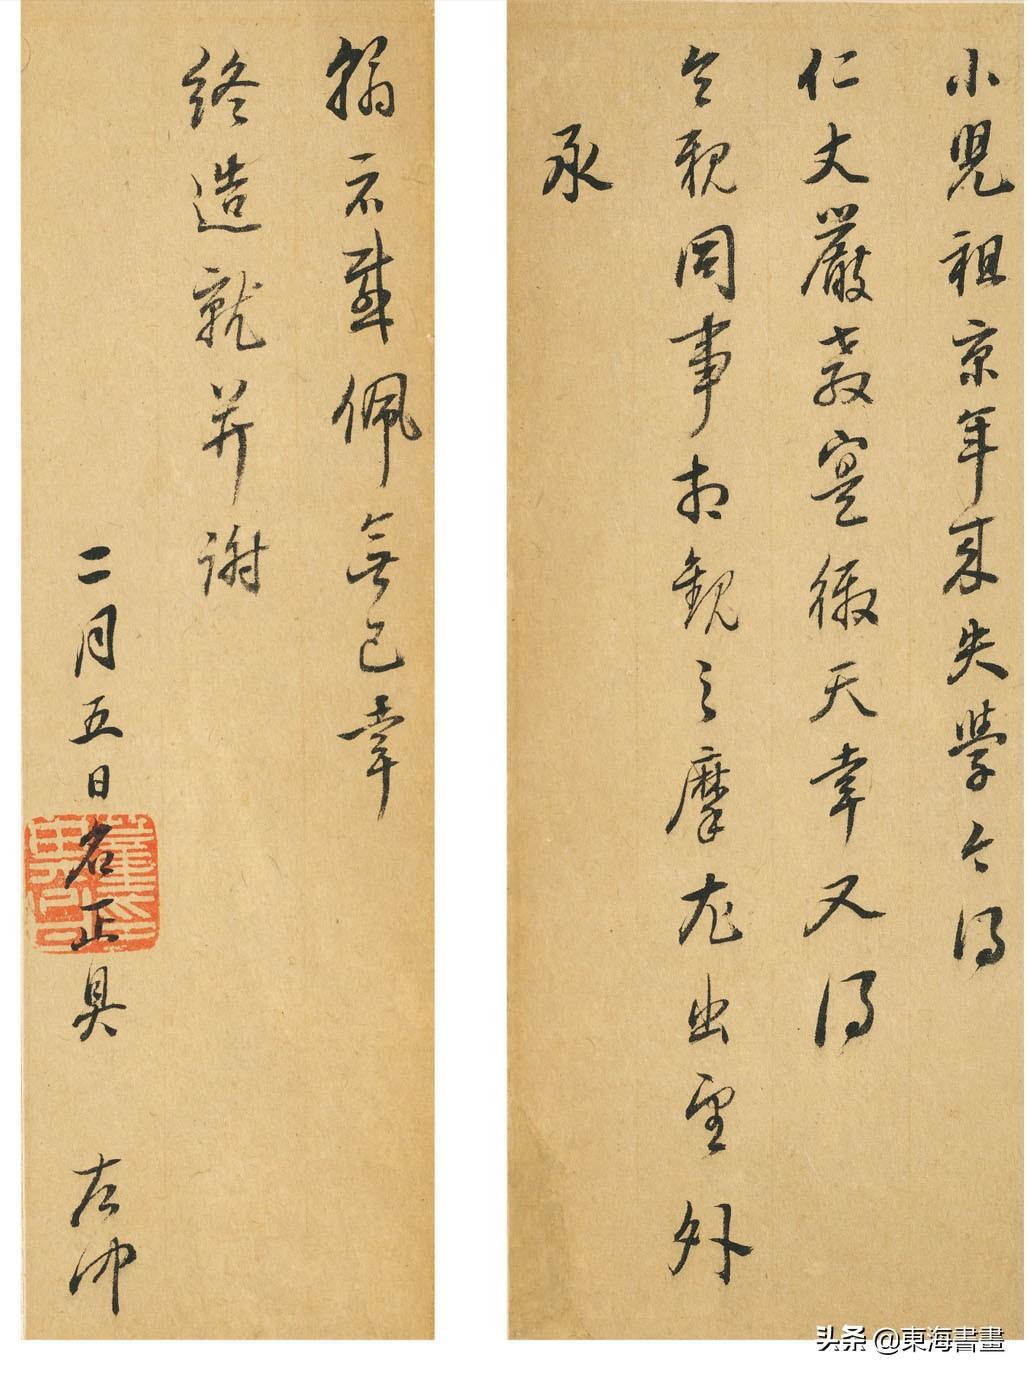 小兒祖京年來失學今得
仁丈嚴教寔徼天幸又得
令親同事相觀之摩尤出望外
承
翰示感佩無已幸
終造就并謝
二月五日名正具 左沖
头条 @東海書畫